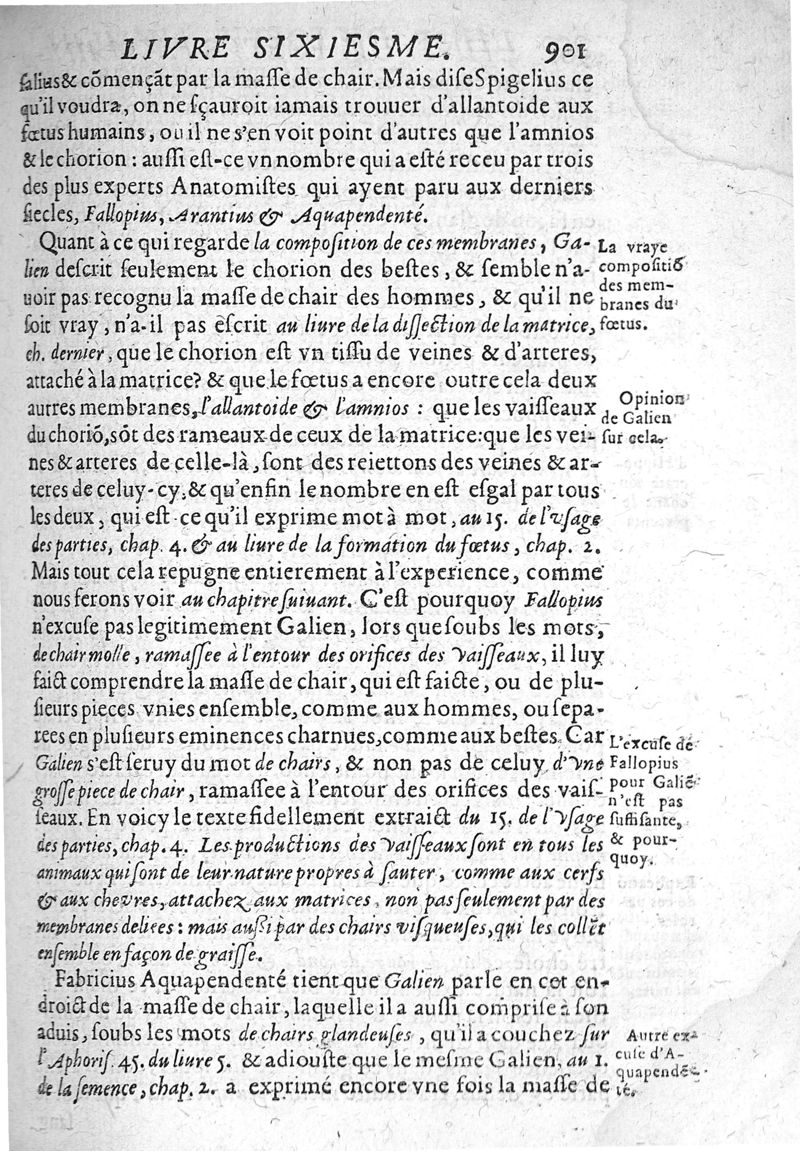 LIVRE SIXIESME. 901
ſalius & cõmençãt par la maſſe de chair. Mais diſe Spigelius ce
qu'il voudra, on ne ſçauroit iamais trouuer d'allantoide aux
fœtus humains, ou il ne s'en voit point d'autres que l'amnios
& le chorion : auſſi eſt-ce vn nombre qui a eſté receu par trois
des plus experts Anatomiſtes qui ayent paru aux derniers
ſiecles, Fallopius, Arantius & Aquapendenté.
Quant à ce qui regarde la compoſition de ces membranes, Ga-
lien deſcrit ſeulement le chorion des beſtes, & ſemble n'a-
uoir pas recognu la maſſe de chair des hommes, & qu'il ne
ſoit vray, n'a-il pas eſcrit au liure de la diſſection de la matrice,
ch. dernier, que le chorion eſt vn tiſſu de veines & d'arteres,
attaché à la matrice? & que le fœtus a encore outre cela deux
autres membranes, l'allantoide & l'amnios : que les vaiſſeaux
du choriõ, sõt des rameaux de ceux de la matrice: que les vei-
nes & arteres de celle-là, ſont des reiettons des veines & ar-
teres de celuy-cy, & qu'enfin le nombre en eſt eſgal par tous
les deux, qui eſt ce qu'il exprime mot à mot, au 15. de l'vſage
des parties, chap. 4. & au liure de la formation du fœtus, chap. 2.
Mais tout cela repugne entierement à l'experience, comme
nous ferons voir au chapitre ſuiuant. C'eſt pourquoy Fallopius
n'excuſe pas legitimement Galien, lors que ſoubs les mots,
de chair molle, ramaſſee à l'entour des orifices des vaiſſeaux, il luy
faict comprendre la maſſe de chair, qui eſt faicte, ou de plu-
ſieurs pieces vnies enſemble, comme aux hommes, ou ſepa-
rees en pluſieurs eminences charnues, comme aux beſtes. Car
Galien s'eſt ſeruy du mot de chairs, & non pas de celuy d'vne
groſſe piece de chair, ramaſſee à l'entour des orifices des vaiſ-
ſeaux. En voicy le texte fidellement extraict du 15. de l'vſage
des parties, chap. 4. Les productions des vaiſſeaux ſont en tous les
animaux qui ſont de leur nature propres à ſauter, comme aux cerfs
& aux chevres, attachez aux matrices, non pas ſeulement par des
membranes deliees : mais auſſi par des chairs viſqueuſes, qui les collẽt
enſemble en façon de graiſſe.
Fabricius Aquapendenté tient que Galien parle en cet en-
droict de la maſſe de chair, laquelle il a auſſi compriſe à ſon
aduis, ſoubs les mots de chairs glandeuſes, qu'il a couchez ſur
l'Aphoriſ. 45. du liure 5. & adiouſte que le meſme Galien, au 1.
de la ſemence, chap. 2. a exprimé encore vne fois la maſſe de
La vraye
compoſitiõ
des mem-
branes du
fœtus.
Opinion
de Galien
ſur cela.
L'excuſe de
Fallopius
pour Galiẽ
n'eſt pas
ſuffiſante,
& pour-
quoy.
Autre ex-
cuſe d'A-
quapendẽ-
té.